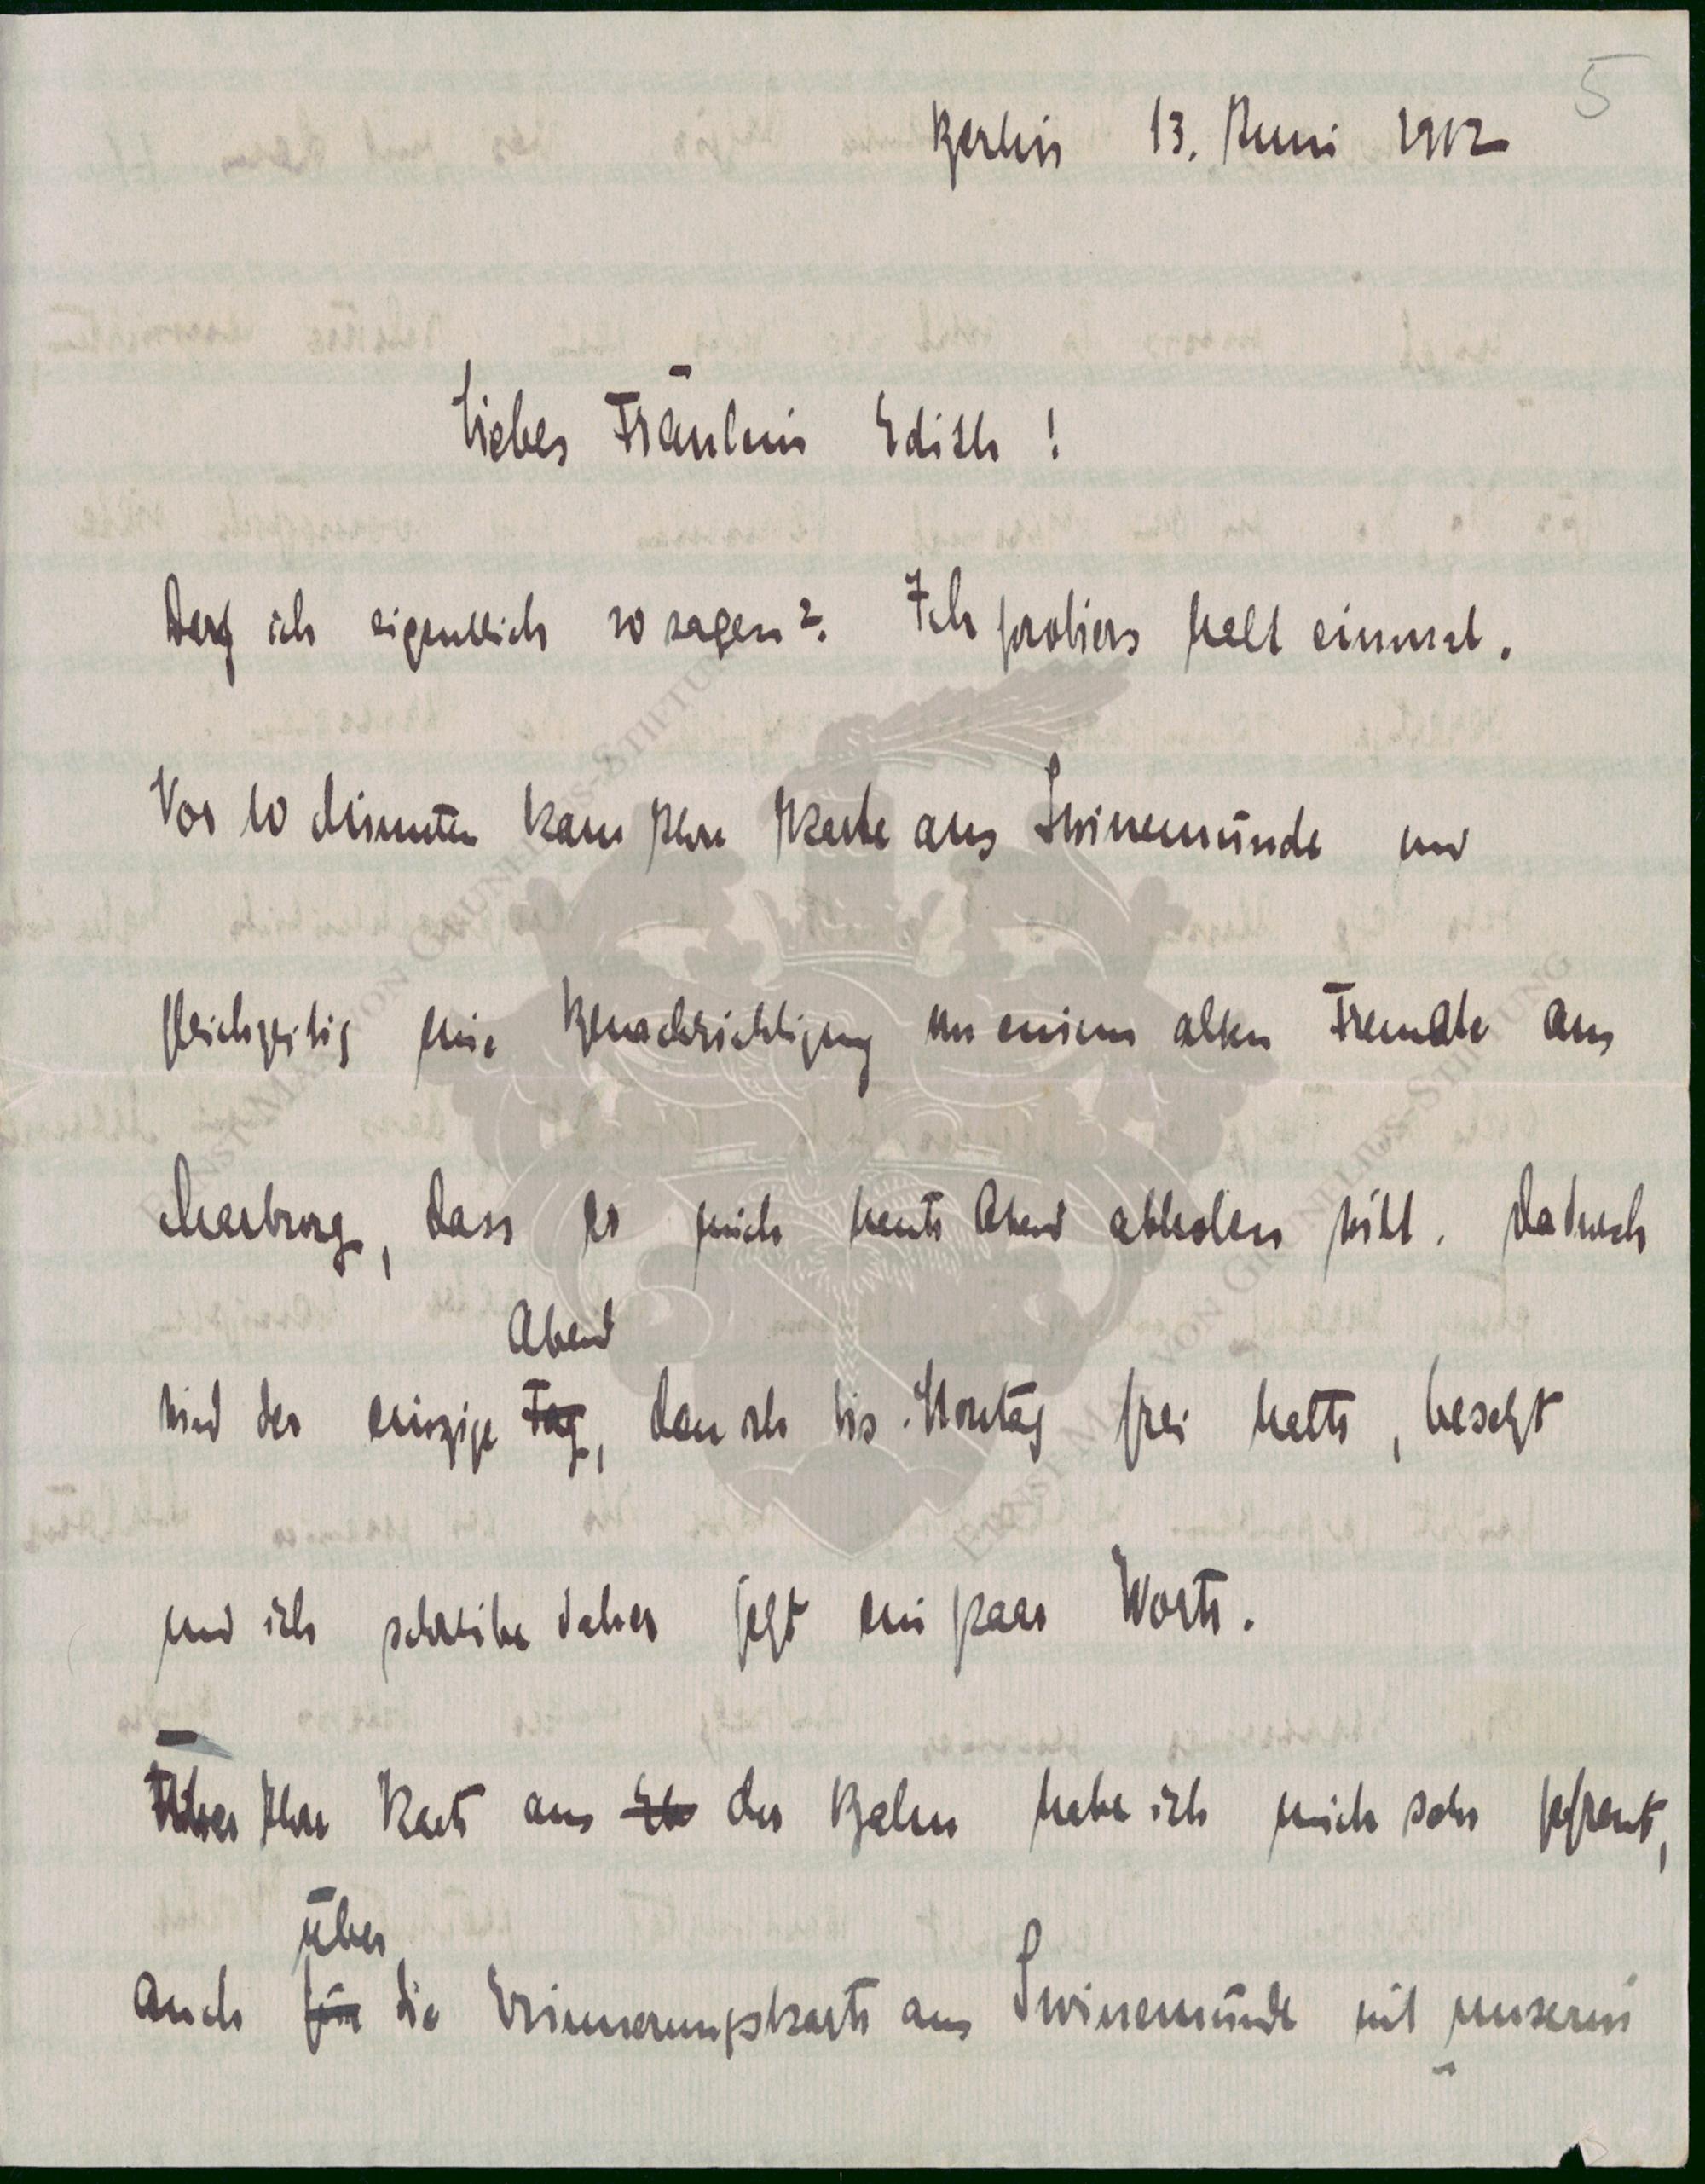 5
Berlin 13. Juni 1912
Liebes Fräulein Edith!
Darf ich eigentlich so sagen? Ich probiers halt einmal.
Vor 10 Minuten kam Ihre Karte aus Swinemünde und
gleichzeitig eine Benachrichtigung von einem alten Freunde aus
Marburg, dass er mich heute Abend abholen will. Dadurch
Abend
wird der einzige Tag, den ich bis Montag frei hatte, besetzt
und ich schreibe daher jetzt ein paar Worte.
Über Ihre Karte aus der Bahn habe ich mich sehr gefreut,
über
auch für die Erinnerungskarte aus Swinemünde mit unserm
ERNST MAX VON GRUNELIUS-STIFTUNG
ERNST MAX VON GRUNELIUS-STIFTUNG